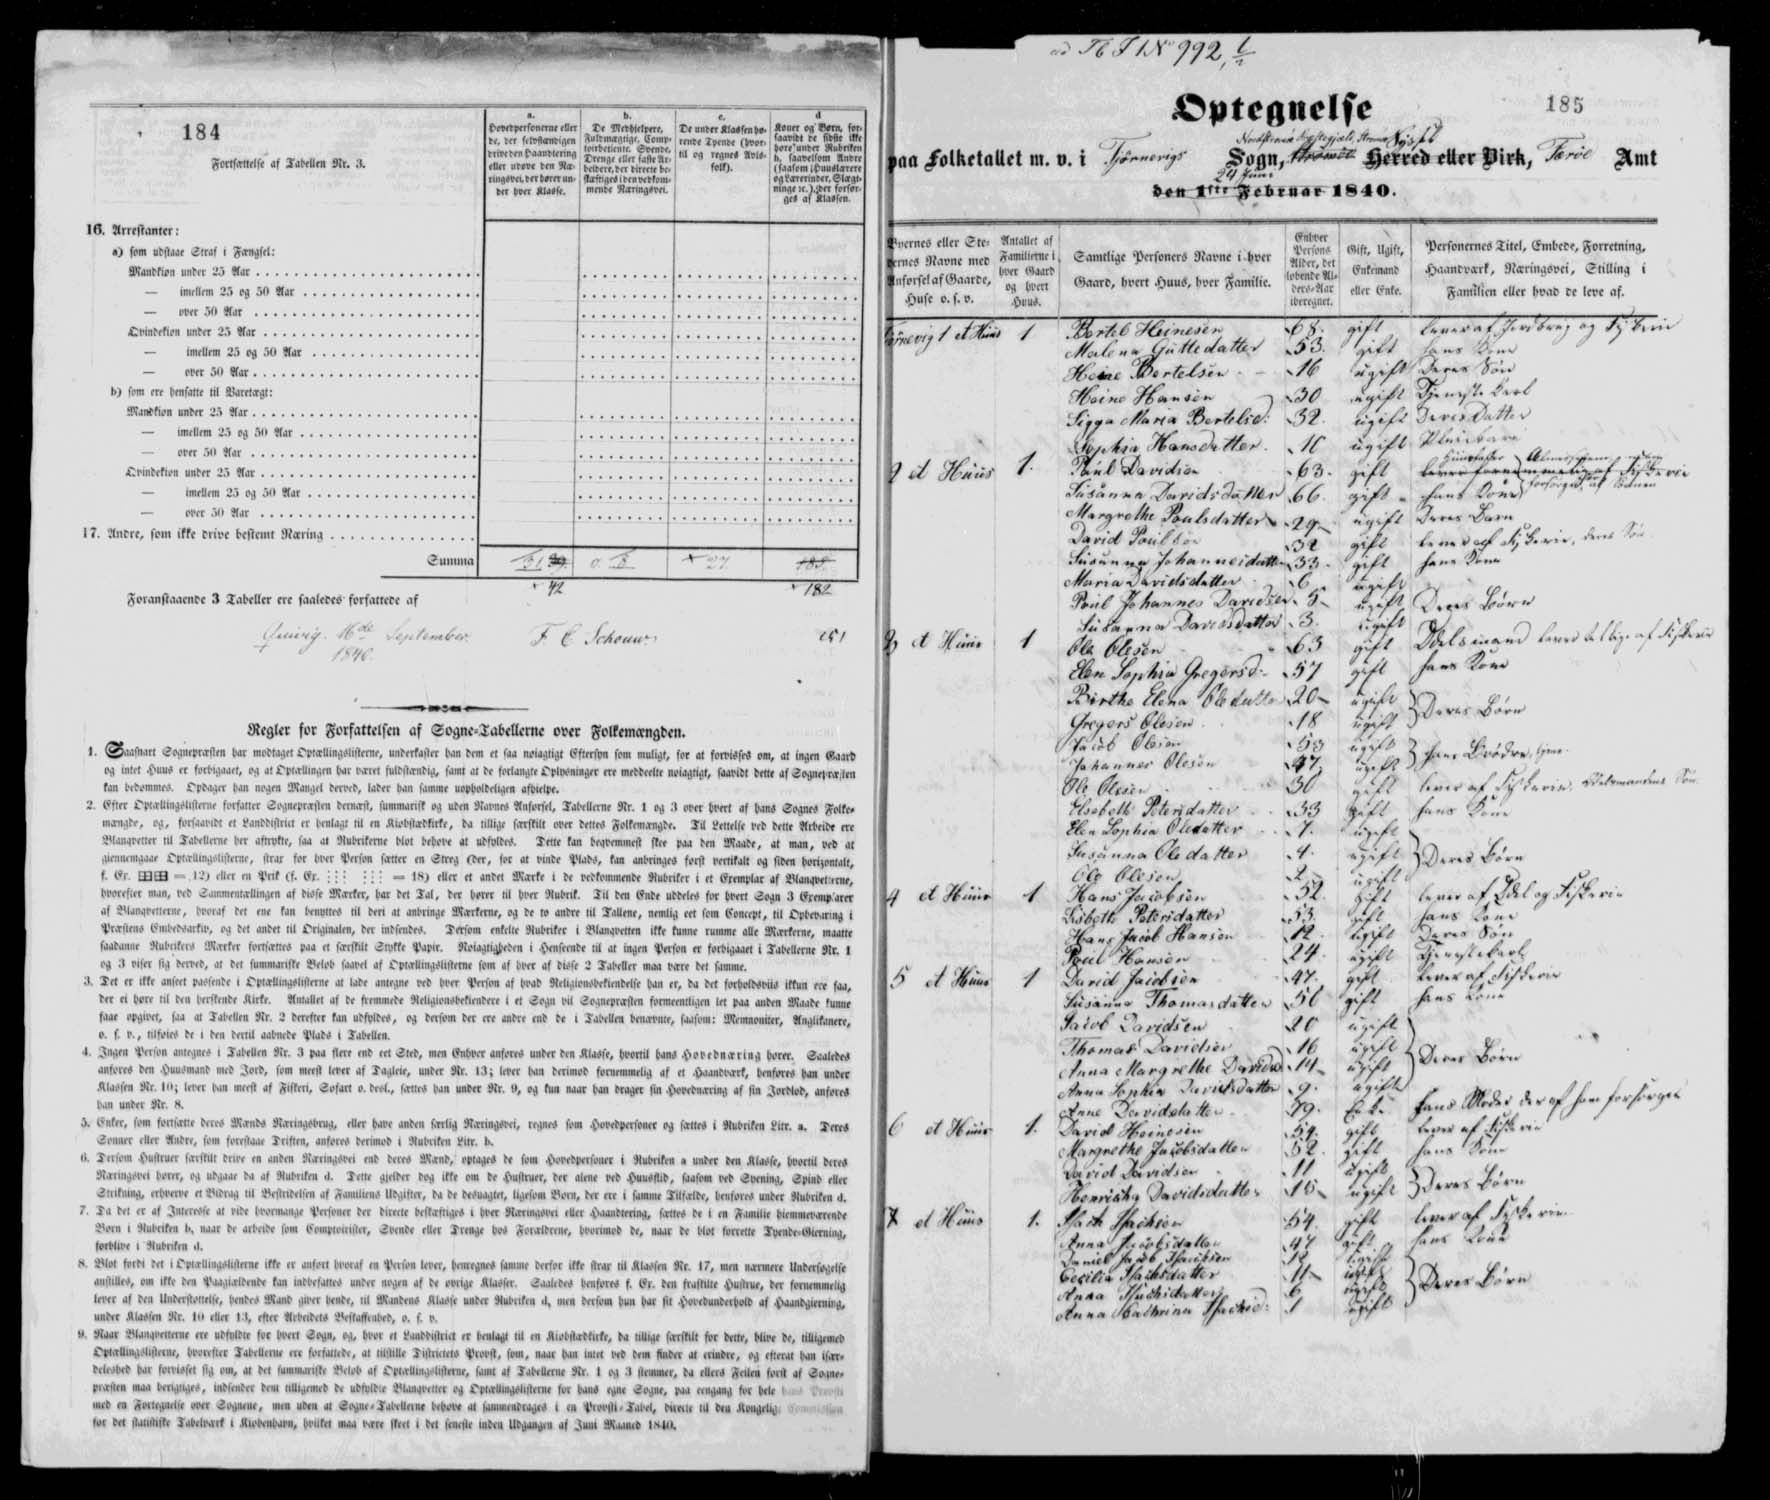 184
Fortsættelse af Tabellen Nr. 3.
a.
Hovedpersonerne eller
de, der selvstændigen
drive den Haandtering
eller udøve den Næ-
ringsvei, der hører un-
der hver Klasse.
b.
De Medhjelpere,
Fuldmægtige, Comp-
toirbetiente, Svende,
Drenge eller faste Ar-
beidere, der directe be-
skæftiges i den vedkom-
mende Næringsvei.
c.
De under Klassen hø-
rende Tyende (hvor-
til og regnes Avls-
folk).
d
Koner og Børn, for-
saavidt de sidste ikke
høre under Rubriken
b, saavelsom Andre
(saasom Huuslærere
og Lærerinder, Slægt-
ninge ꝛc.), der forsør-
ges af Klassen.
16. Arrestanter:
a) som udstaae Straf i Fængsel:
Mandkiøn under 25 Aar
— imellem 25 og 50 Aar
— over 50 Aar
Qvindekiøn under 25 Aar
— imellem 25 og 50 Aar
— over 50 Aar
b) som ere hensatte til Varetægt:
Mandkiøn under 25 Aar
— imellem 25 og 50 Aar
— over 50 Aar
Qvindekiøn under 25 Aar
— imellem 25 og 50 Aar
— over 50 Aar
17. Andre, som ikke drive bestemt Næring
Summa 27. 185.
42 182
Foranstaaende 3 Tabeller ere saaledes forfattede af
Qvivig. 16de September. F. C. Schouw. 251
1840.
Regler for Forfattelsen af Sogne-Tabellerne over Folkemængden.
1. Saasnart Sognepræsten har modtaget Optællingslisterne, underkaster han dem et saa nøiagtigt Eftersyn som muligt, for at forvisses om, at ingen Gaard
og intet Huus er forbigaaet, og at Optællingen har været fuldstændig, samt at de forlangte Oplysninger ere meddeelte nøiagtigt, saavidt dette af Sognepræsten
kan bedømmes. Opdager han nogen Mangel derved, lader han samme uopholdeligen afhielpe.
2. Efter Optællingslisterne forfatter Sognepræsten dernæst, summarisk og uden Navnes Anførsel, Tabellerne Nr. 1 og 3 over hvert af hans Sognes Folke-
mængde, og, forsaavidt et Landdistrict er henlagt til en Kiøbstædkirke, da tillige særskilt over dettes Folkemængde. Til Lettelse ved dette Arbeide ere
Blanqvetter til Tabellerne her aftrykte, saa at Rubrikerne blot behøve at udfyldes. Dette kan beqvemmest skee paa den Maade, at man, ved at
giennemgaae Optællingslisterne, strax for hver Person sætter en Streg (der, for at vinde Plads, kan anbringes først vertikalt og siden horizontalt,
f. Ex. = 12) eller en Prik (f. Ex. = 18) eller et andet Mærke i de vedkommende Rubriker i et Exemplar af Blanqvetterne,
hvorefter man, ved Sammentællingen af disse Mærker, har det Tal, der hører til hver Rubrik. Til den Ende uddeles for hvert Sogn 3 Exemplarer
af Blanqvetterne, hvoraf det ene kan benyttes til deri at anbringe Mærkerne, og de to andre til Tallene, nemlig eet som Concept, til Opbevaring i
Præstens Embedsarkiv, og det andet til Originalen, der indsendes. Dersom enkelte Rubriker i Blanqvetten ikke kunne rumme alle Mærkerne, maatte
saadanne Rubrikers Mærker fortsættes paa et særskilt Stykke Papir. Nøiagtigheden i Henseende til at ingen Person er forbigaaet i Tabellerne Nr. 1
og 3 viser sig derved, at det summariske Beløb saavel af Optællingslisterne som af hver af disse 2 Tabeller maa være det samme.
3. Det er ikke anseet passende i Optællingslisterne at lade antegne ved hver Person af hvad Religionsbekiendelse han er, da det forholdsviis ikkun ere faa,
der ei høre til den herskende Kirke. Antallet af de fremmede Religionsbekiendere i et Sogn vil Sognepræsten formeentligen let paa anden Maade kunne
faae opgivet, saa at Tabellen Nr. 2 derefter kan udfyldes, og dersom der ere andre end de i Tabellen benævnte, saasom: Memnoniter, Anglikanere,
o. s. v., tilføies de i den dertil aabnede Plads i Tabellen.
4. Ingen Person antegnes i Tabellen Nr. 3 paa flere end eet Sted, men Enhver anføres under den Klasse, hvortil hans Hovednæring hører. Saaledes
anføres den Huusmand med Jord, som meest lever af Dagleie, under Nr. 13; lever han derimod fornemmelig af et Haandværk, henføres han under
Klassen Nr. 10; lever han meest af Fiskeri, Søfart o. desl., sættes han under Nr. 9, og kun naar han drager sin Hovednæring af sin Jordlod, anføres
han under Nr. 8.
5. Enker, som fortsætte deres Mænds Næringsbrug, eller have anden særlig Næringsvei, regnes som Hovedpersoner og sættes i Rubriken Litr. a. Deres
Sønner eller Andre, som forestaae Driften, anføres derimod i Rubriken Litr. b.
6. Dersom Hustruer særskilt drive en anden Næringsvei end deres Mænd, optages de som Hovedpersoner i Rubriken a under den Klasse, hvortil deres
Næringsvei hører, og udgaae da af Rubriken d. Dette gjelder dog ikke om de Hustruer, der alene ved Huusflid, saasom ved Syening, Spind eller
Strikning, erhverve et Bidrag til Bestridelsen af Familiens Udgifter, da de desuagtet, ligesom Børn, der ere i samme Tilfælde, henføres under Rubriken d.
7. Da det er af Interesse at vide hvormange Personer der directe beskæftiges i hver Næringsvei eller Haandtering, sættes de i en Familie hiemmeværende
Børn i Rubriken b, naar de arbeide som Comptoirister, Svende eller Drenge hos Forældrene, hvorimod de, naar de blot forrette Tyende-Gierning,
forblive i Rubriken d.
8. Blot fordi det i Optællingslisterne ikke er anført hvoraf en Person lever, henregnes samme derfor ikke strax til Klassen Nr. 17, men nærmere Undersøgelse
anstilles, om ikke den Paagiældende kan indbefattes under nogen af de øvrige Klasser. Saaledes henføres f. Ex. den fraskilte Hustrue, der fornemmelig
lever af den Understøttelse, hendes Mand giver hende, til Mandens Klasse under Rubriken d, men dersom hun har sit Hovedunderhold af Haandgierning,
under Klassen Nr. 10 eller 13, efter Arbeidets Beskaffenhed, o. s. v.
9. Naar Blanqvetterne ere udfyldte for hvert Sogn, og, hvor et Landdistrict er henlagt til en Kiøbstædkirke, da tillige særskilt for dette, blive de, tilligemed
Optællingslisterne, hvorefter Tabellerne ere forfattede, at tilstille Districtets Provst, som, naar han intet ved dem finder at erindre, og efterat han især-
deleshed har forvisset sig om, at det summariske Beløb af Optællingslisterne, samt af Tabellerne Nr. 1 og 3 stemmer, da ellers Feilen først af Sogne-
præsten maa berigtiges, indsender dem tilligemed de udfyldte Blanqvetter og Optællingslisterne for hans egne Sogne, paa eengang for hele hans Provsti
med en Fortegnelse over Sognene, men uden at Sogne-Tabellerne behøve at sammendrages i en Provsti-Tabel, directe til den Kongelige Commission
for det statistiske Tabelværk i Kiøbenhavn, hvilket maa være skeet i det seneste inden Udgangen af Juni Maaned 1840.
992
185
Optegnelse
paa Folketallet m. v. i Tjörnevigs Sogn, Strømøe Herred eller Birk, Færöe Amt
24 Juni
den 1ste Februar 1840.
Byernes eller Ste-
dernes Navne med
Anførsel af Gaarde,
Huse o. s. v.
Antallet af
Familierne i
hver Gaard
og hvert
Huus.
Samtlige Personers Navne i hver
Gaard, hvert Huus, hver Familie.
Enhver
Persons
Alder, det
løbende Al-
ders-Aar
iberegnet.
Gift, Ugift,
Enkemand
eller Enke.
Personernes Titel, Embede, Forretning,
Haandværk, Næringsvei, Stilling i
Familien eller hvad de leve af.
1 et Huus 1 Bertel Heinesen 68. gift lever af Jordbrug og Fiskerie
Malena Guttedatter 53. gift hans Kone
Heine Bertelsen 16 ugift Deres Sön
Heine Hansen 30 ugift Tjenestekarl
Sigga Maria Bertelsd: 32. ugift Deres Datter
Sophia Hansdatter. 11 ugift
2 et Huus 1. Poul Davidsen 63. gift
Susanna Davidsdatter 66. gift hans Kone
Margrethe Poulsdatter 29 ugift Deres Barn
David Poulsen 32 gift lever af Fiskerie, deres Sön
Susanna Johannesdatter 33 gift hans Kone
Maria Davidsdatter 6 ugift
Poul Johannes Davidsen 5 ugift Deres Börn
Susanna Davidsdatter 3. ugift
3 et Huus 1 Ole Olesen 63 gift Odelsmand lever tillige af Fiskerie
Elen Sophia Gregersd: 57 gift hans Kone
Birthe Elena Oledatter 20 ugift Deres Börn
Gregers Olesen 18 ugift
Jacob Olesen 53 ugift hans Brødre, tjene.
Johannes Olesen 47 ugift
Ole Olesen 30 gift lever af Fiskerie, Odelsmandens Sön
Elsebeth Petersdatter 33 gift hans Kone
Elen Sophia Oledatter 7. ugift
Susanna Oledatter 4. ugift Deres Börn
Ole Olesen 2 ugift
4 et Huus 1 Hans Jacobsen 52. gift lever af Odel og Fiskerie
Lisbeth Petersdatter 53 gift hans Kone
Hans Jacob Hansen 12 ugift Deres Sön
Poul Hansen 24 ugift Tjenestekarl
5 et Huus 1 David Jacobsen 47. gift lever af Fiskerie
Susanna Thomasdatter gift hans Kone
Jacob Davidsen 20 ugift
Thomas Davidsen 16 ugift Deres Börn
Anna Margrethe Davidsd 14 ugift
Anna Sophia Davidsdatter 9. ugift
Anne Davidsdatter 79. Enke hans Moder der af ham forsørges
6 et Huus 1. David Heinesen 54. gift lever af Fiskerie
Margrethe Jacobsdatter 52. gift hans Kone
David Davidsen 11 ugift Deres Börn
Davidsdatter 15 ugift
7 et Huus 1. Isach Isachsen 54. gift lever af Fiskerie
Anna Jacobsdatter 47 gift hans Kone
Daniel Jacob Isachsen 12 ugift
Cecilia Isachsdatter 11 ugift Deres Börn
Anna Isachsdatter 6 ugift
Anna Cathrina Isachsd: 1 ugift